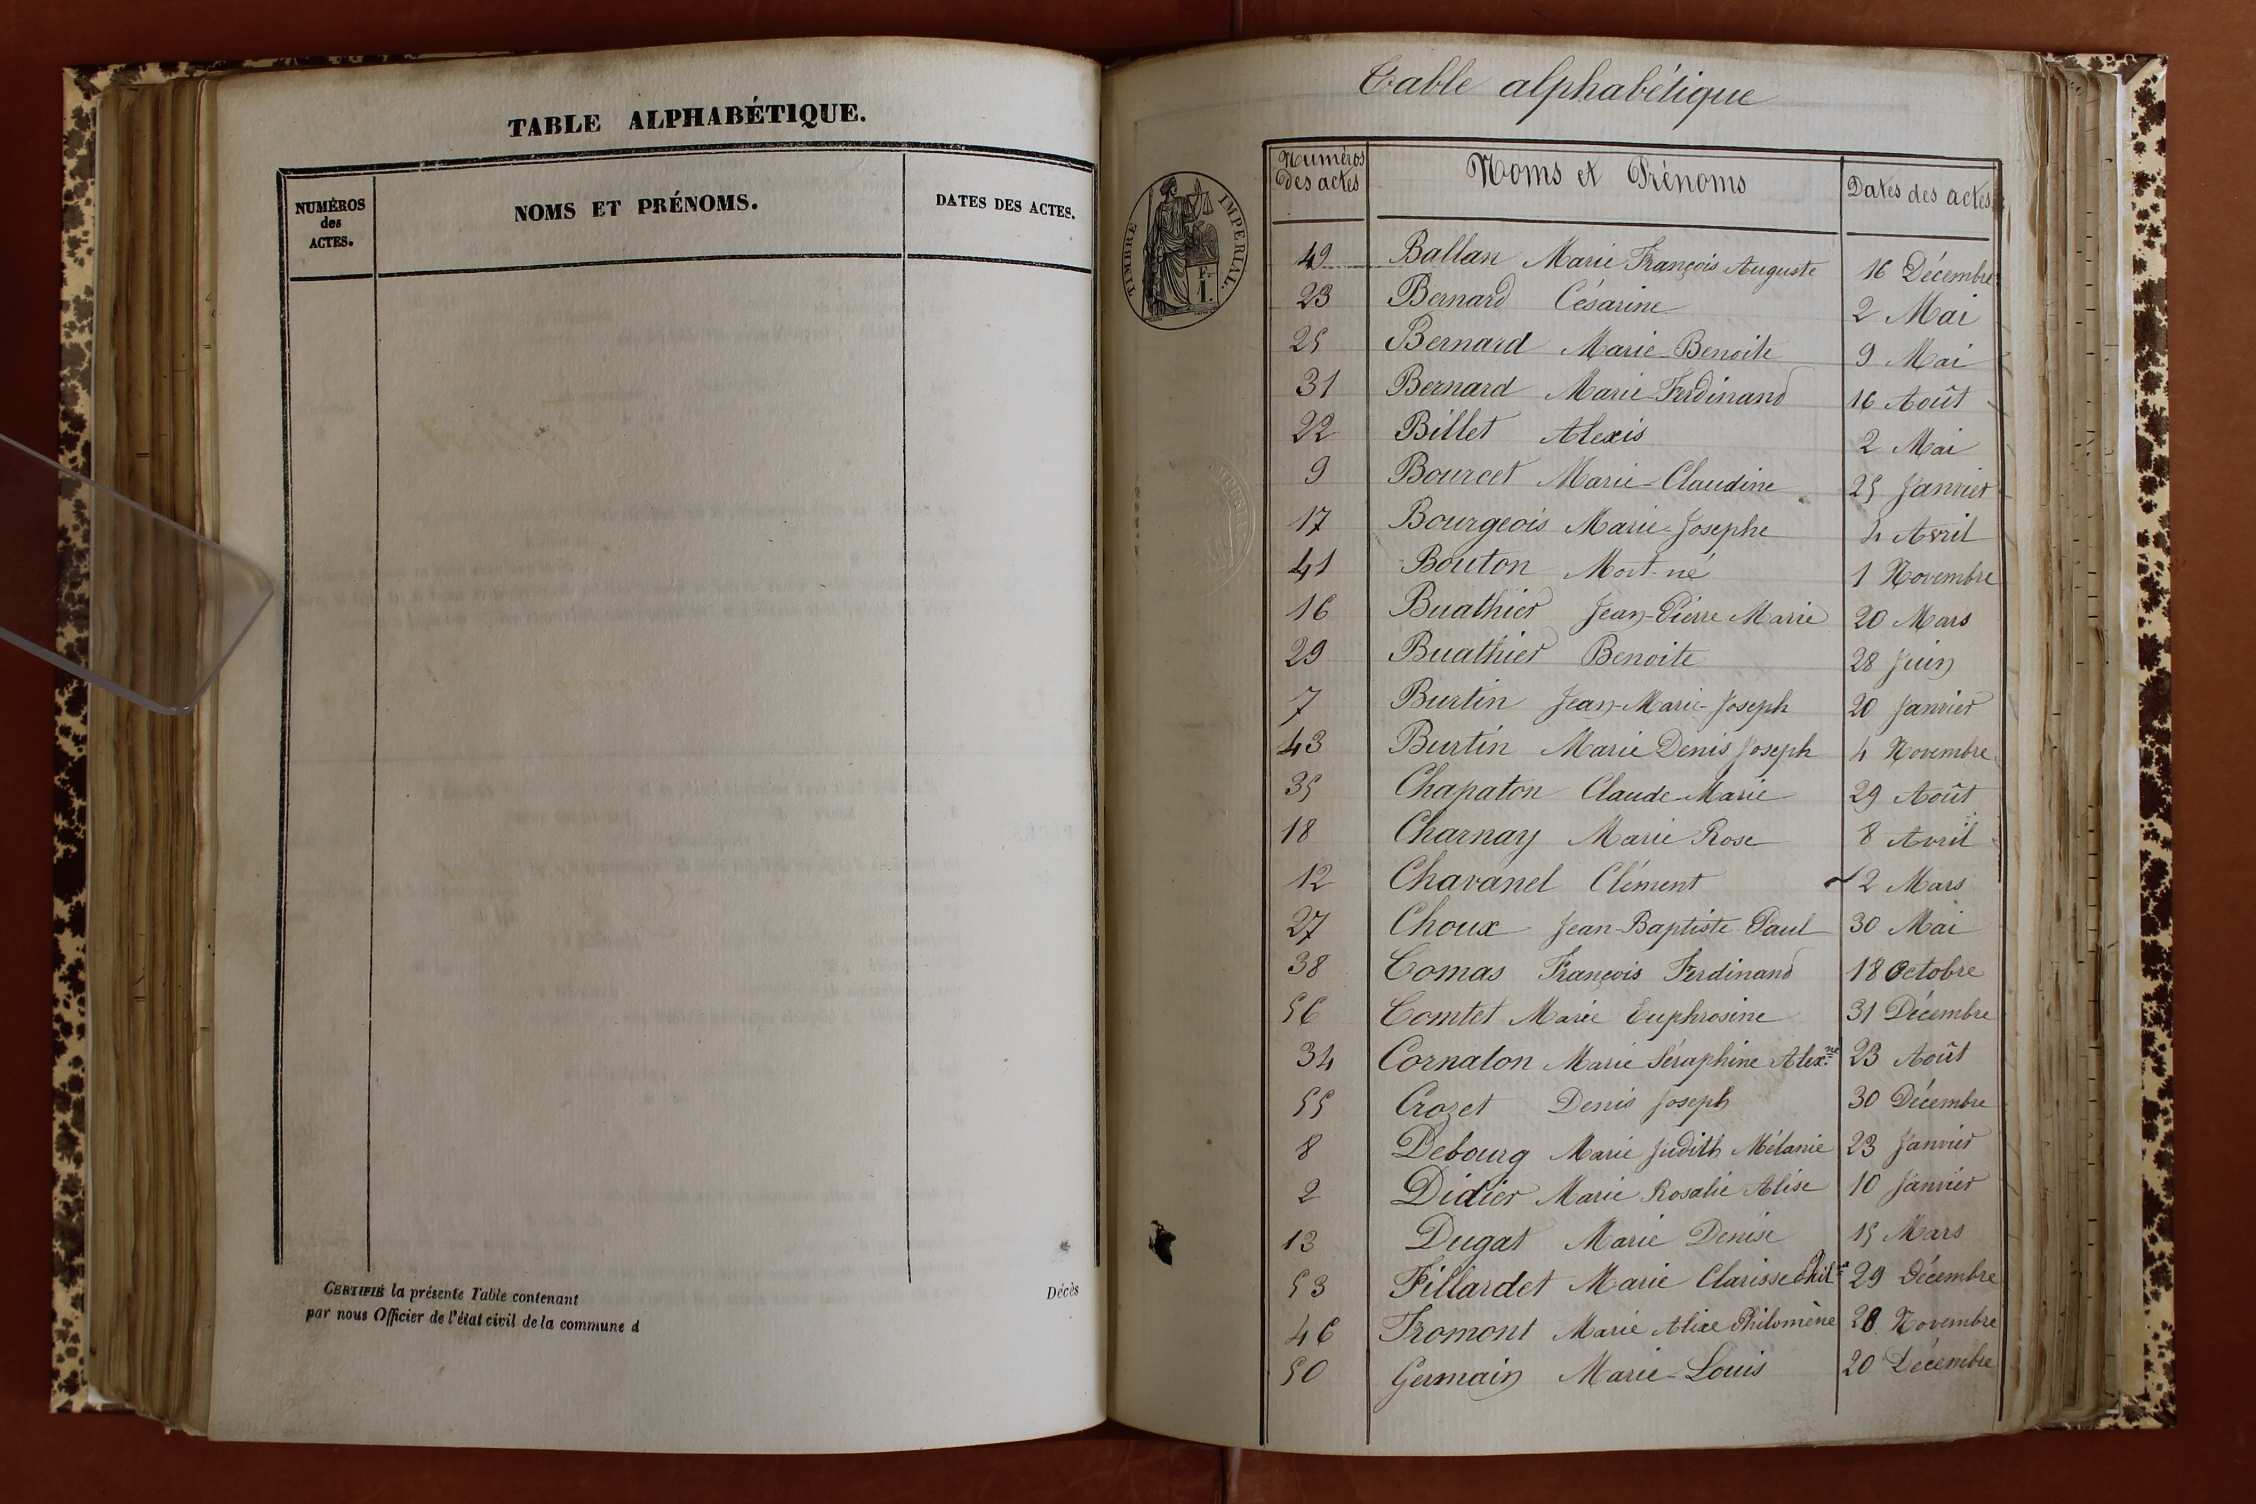 TABLE ALPHABÉTIQUE.
NUMÉROS
des
ACTES.
NOMS ET PRÉNOMS.
DATES DES ACTES.
CERTIFIÉ la présente Table contenant Décès
par nous Officier de l'état civil de la commune d
Table alphabétique
TIMBRE IMPERIAL.
F.
1.
Numéros
des actes
Noms et Prénoms
Dates des actes
49 Ballan Marie François Auguste 16 Décembre
23 Bernard Césarine 2 Mai
25 Bernard Marie-Benoite 9 Mai
31 Bernard Marie-Ferdinand 16 Août
22 Billet Alexis 2 Mai
9 Bourcet Marie-Claudine 25 Janvier
17 Bourgeois Marie-Josephe 4 Avril
41 Bouton Mort-né 1 Novembre
16 Buathier Jean-Pierre Marie 20 Mars
29 Buathier Benoite 28 Juin
7 Burtin Jean-Marie-Joseph 20 Janvier
43 Burtin Marie Denis Joseph 4 Novembre
35 Chapaton Claude-Marie 29 Août
18 Charnay Marie Rose 8 Avril
12 Chavanel Clément 2 Mars
27 Choux Jean-Baptiste Paul 30 Mai
38 Comas François Ferdinand 18 Octobre
56 Comtet Marie Euphrosine 31 Décembre
34 Cornaton Marie Séraphine Alex.ne 23 Août
55 Crozet Denis Joseph 30 Décembre
8 Debourg Marie Judith Mélanie 23 Janvier
2 Didier Marie Rosalie Alise 10 Janvier
13 Dugat Marie Denise 15 Mars
53 Fillardet Marie Clarisse Phil.e 29 Décembre
46 Fromont Marie Alixe Philomène 28 Novembre
50 Germain Marie-Louis 20 Décembre